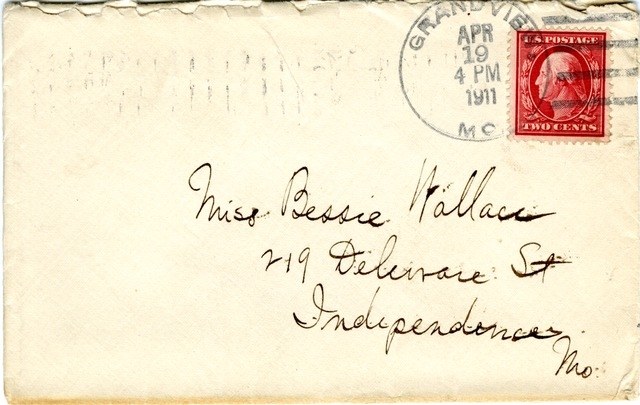 GRANDVIEW
APR
19
4 PM
1911
MO.
U.S. POSTAGE
TWO CENTS
Miss Bessie Wallace
219 Delaware St
Independence
Mo.